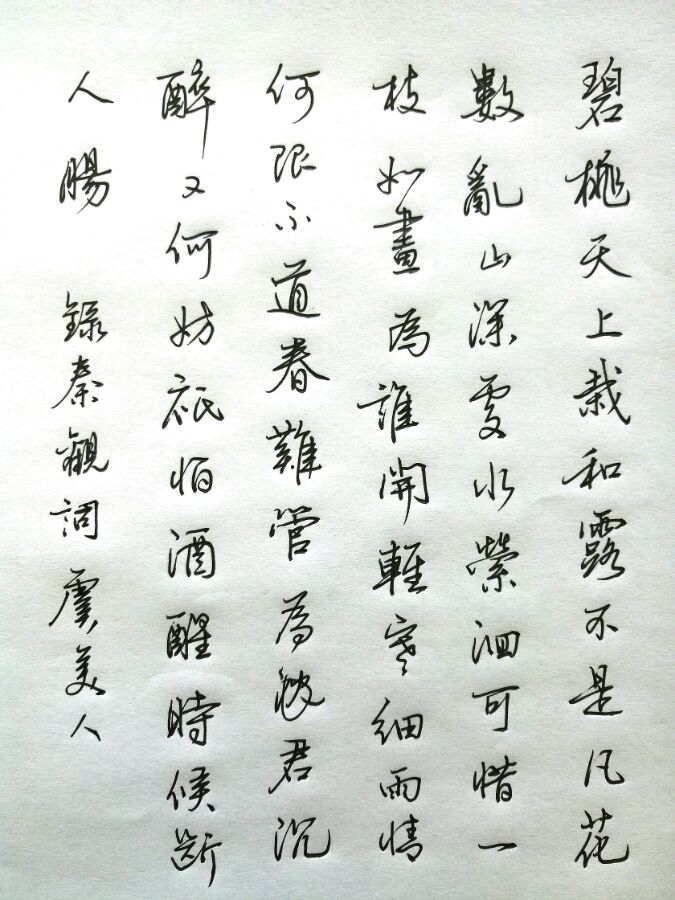 碧桃天上栽和露不是凡花
數亂山深處水縈洄可惜一
枝如畫為誰開輕寒細雨情
何限不道春難管為君沉
醉又何妨祇怕酒醒時候斷
人腸 錄秦觀詞虞美人